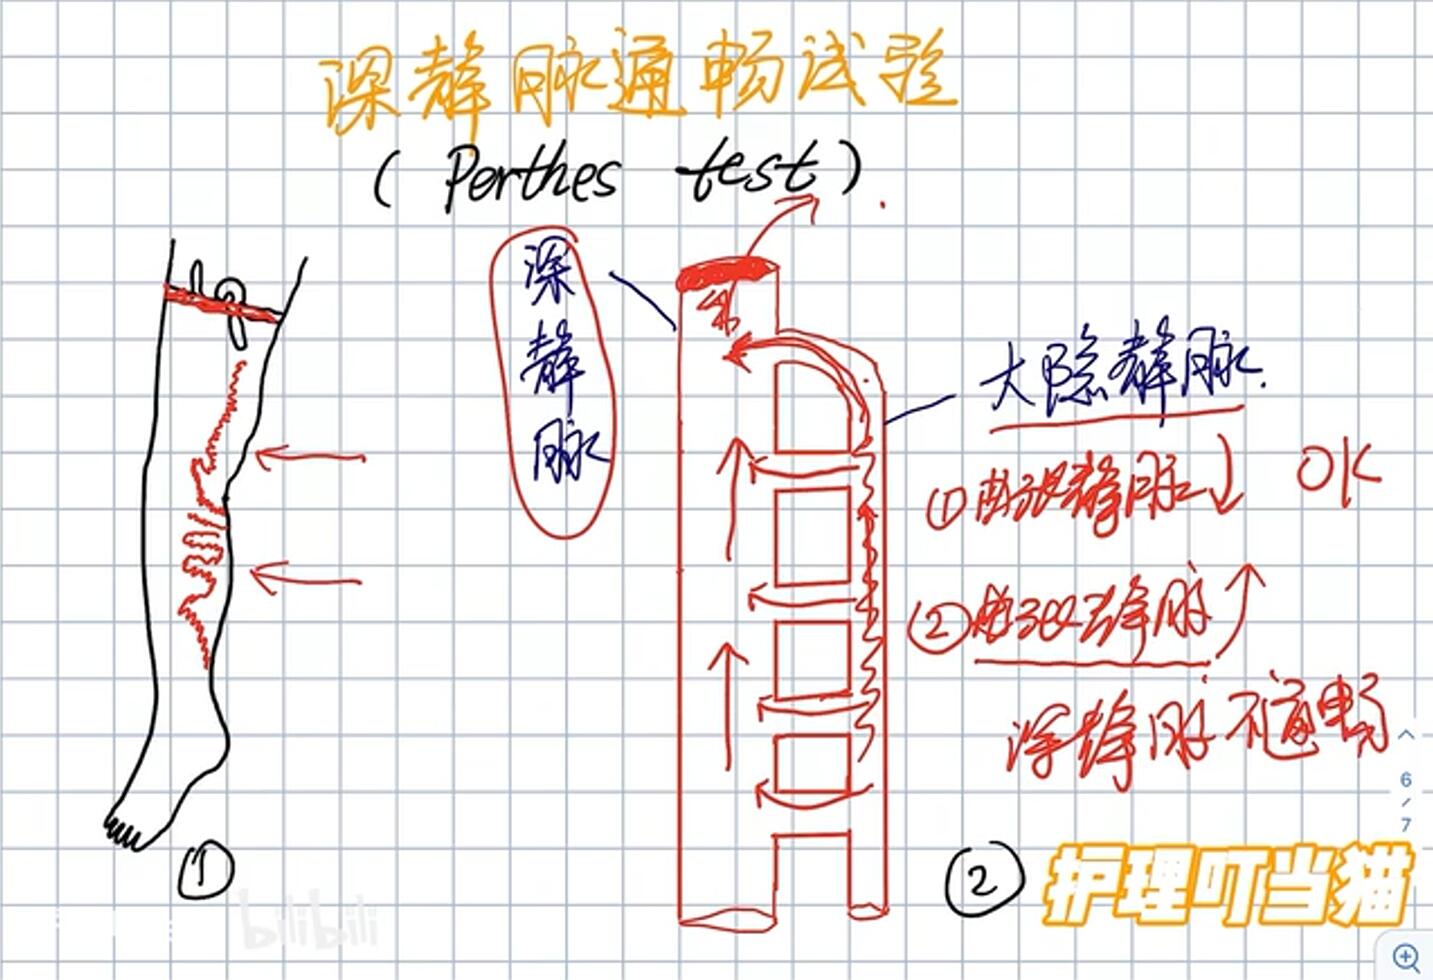 深静脉通畅试验
(Perthes test)
深静脉
大隐静脉.
①曲张静脉↓ OK
②曲张静脉↑
深静脉不通畅
①
②
护理叮当猫
bilibili
6
/
7